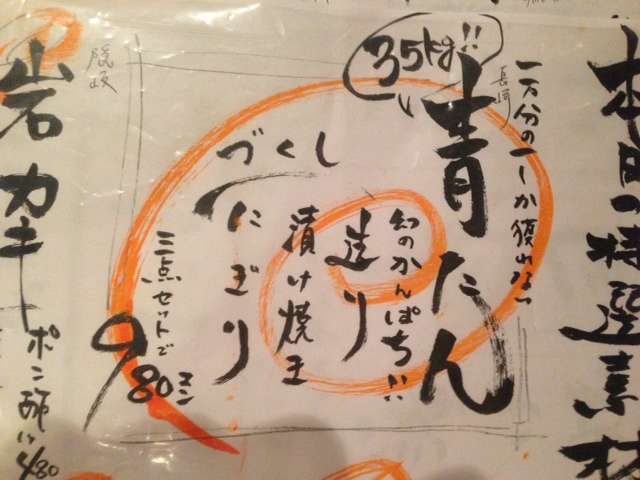 本日の特選素材
一万分の一しか獲れない
長崎
35kg!!
青たん
幻のかんぱち!!
造り
漬け焼き
にぎり
づくし
三点セットで
980エン
隠岐
岩カキ
ポン酢に480